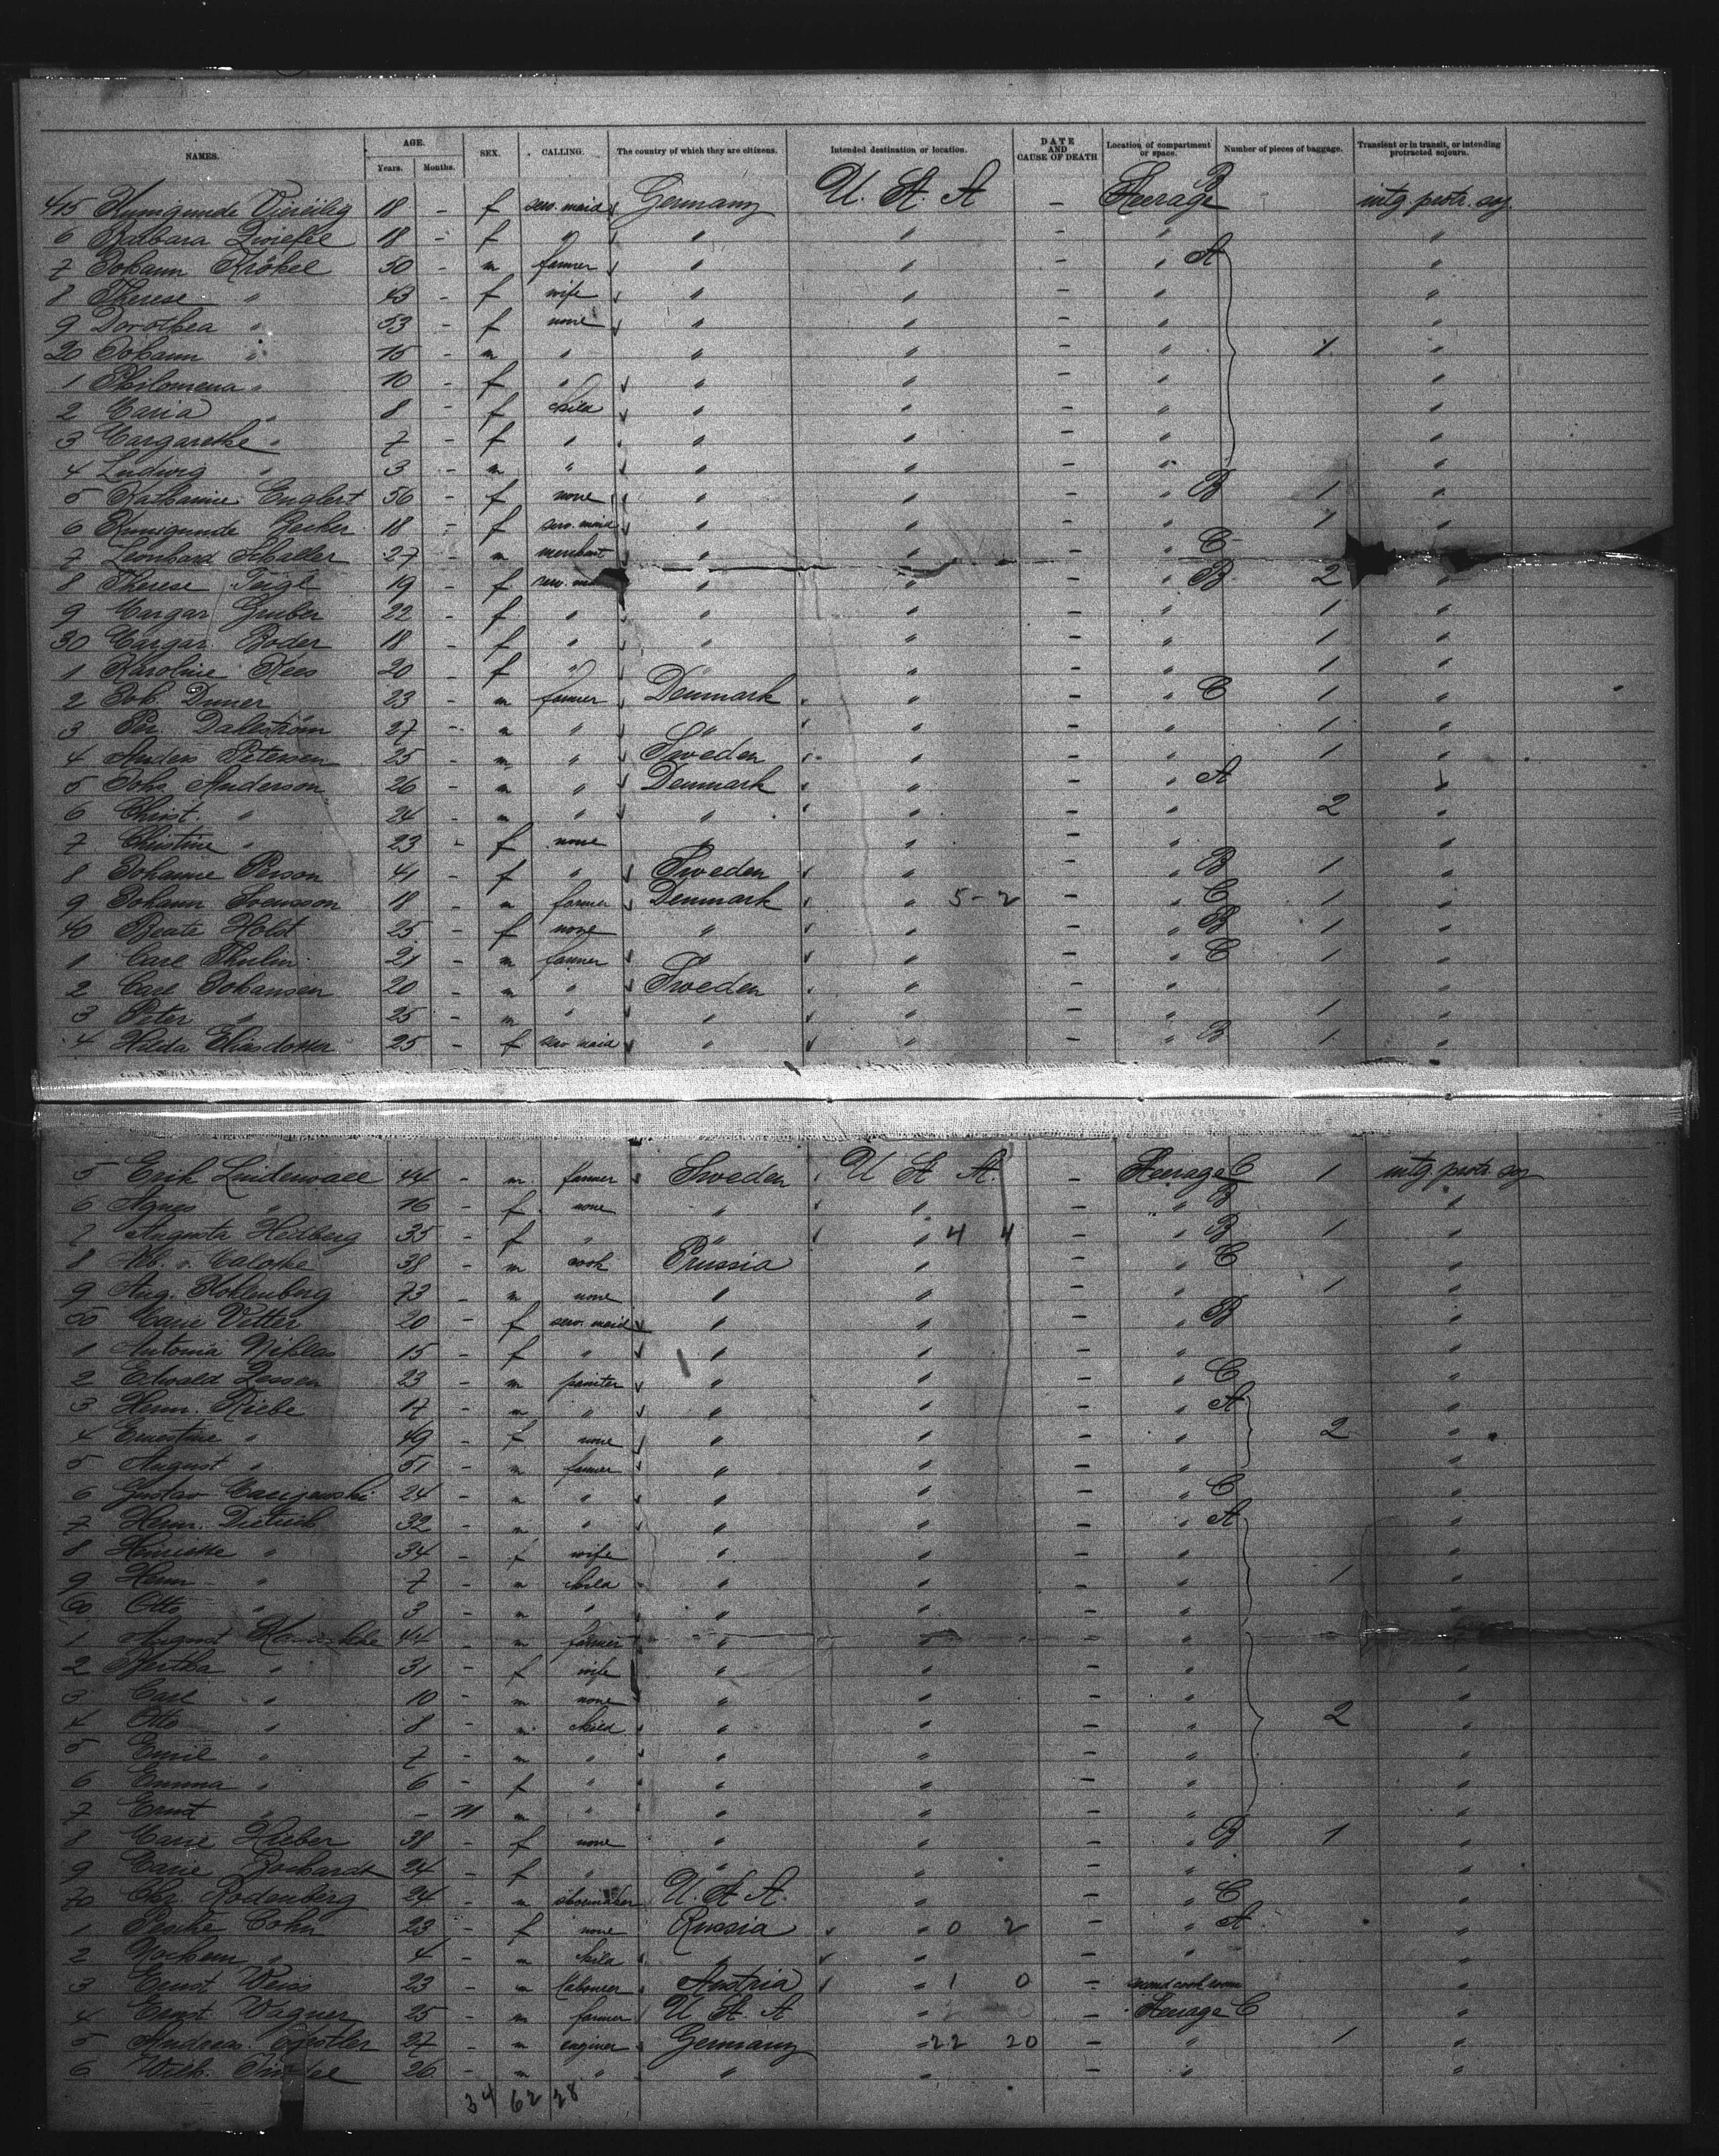 NAMES. AGE. SEX. CALLING. The country of which they are citizens. Intended destination or location. DATE AND CAUSE OF DEATH Location of compartment or space. Number of pieces of baggage. Transient or in transit, or intending protracted sojourn.
Years. Months.
415 Kunigunde 18 - f serv. maid Germany U. S. A - Steerage B intg protr. soj.
6 Barbara 18 - f " " " - " "
7 Johann Krökel 50 - m farmer " " - " A "
8 Therese " 43 - f wife " " - " "
9 Dorothea " 53 - f none " " - " "
20 Johann " 15 - m " " " - " 1 "
1 Philomena " 10 - f " " " - " "
2 Maria " 8 - f child " " - " "
3 Margarethe " 7 - f " " " - " "
4 Ludwig " 3 - m " " " - " "
5 Katharine Englert 56 - f none " " - " B 1 "
6 Kunigunde Becker 18 - f serv. maid " " - " 1 "
7 Leonhard Schaller 27 - m merchant " " - " C
8 Therese Feigl 19 - f serv. " " - " B 2 "
9 Margar Gruber 22 - f " " " - " 1 "
30 Margar. Boder 18 - f " " " - " 1 "
1 Karoline Kees 20 - f " " " - " 1 "
2 Joh. Duner 23 - m farmer Denmark " - " C 1 "
3 Per Dahlström 27 - m " " " - " 1 "
4 Anders Petersen 25 - m " Sweden " - " 1 "
5 Johs. Anderson 26 - m " Denmark " - " A "
6 Christ. " 24 - m " " " - " 2 "
7 Christine " 23 - f none " " - " "
8 Johanne Person 41 - f " Sweden " - " B 1 "
9 Johann Svensson 18 - m farmer Denmark " 5 - 2 - " C 1 "
40 Beate Holst 25 - f none " " - " B 1 "
1 Carl Thulin 21 - m farmer " " - " C 1 "
2 Carl Johansen 20 - m " Sweden " - " "
3 Peter " 25 - m " " " - " 1 "
4 Hilda Eliasdotter 25 - f serv maid " " - " B 1 "
5 Erik Lindewall 44 - m farmer Sweden U S A. - Steerage C 1 intg protr. soj
6 Agnes " 16 - f none " " - " B "
7 Augusta Hedberg 35 - f " " " 4 4 - " B 1 "
8 Alb. v. 38 - m cook Prussia " - " C "
9 Aug. Kohlenberg 73 - m none " " - " 1 "
50 Marie Vetter 20 - f serv. maid " " - " B "
1 Antonia Niklas 15 - f " " " - " "
2 Edwald 23 - m painter " " - " C "
3 Herm. Riebe 17 - m " " " - " A "
4 Ernestine " 49 - f none " " - " 2 "
5 August " 51 - m farmer " " - " "
6 Gustav 24 - m " " " - " C "
7 Herm. Dietrich 32 - m " " " - " A "
8 Henriette " 34 - f wife " " - " "
9 Herm " 7 - m child " " - " 1 "
60 Otto " 3 - m " " " - " "
1 August 44 - m farmer " " "
2 Bertha " 31 - f wife " " - " "
3 Carl " 10 - m none " " - " "
4 Otto " 8 - m child " " - " 2 "
5 Emil " 7 - m " " " - " "
6 Emma " 6 - f " " " - " "
7 Ernst " - 11 m " " " - " "
8 Marie Hieber 38 - f none " " - " B 1 "
9 Marie 24 - f " " " - " "
70 Chr. Rodenberg 24 - m shoemaker U. S A. " - " C "
1 Peshe Cohn 23 - f none Russia " 0 2 - " A "
2 Nochem " 4 - m child " " - " "
3 Ernst Weiss 23 - m labourer Austria " 1 0 - second cook room "
4 Ernst Wagner 25 - m farmer U. S. A " - Steerage C "
5 Andreas 27 - m enginer Germany " 22 20 - " 1 "
6 Wilh. 26 - m " " " - " "
34 62 28